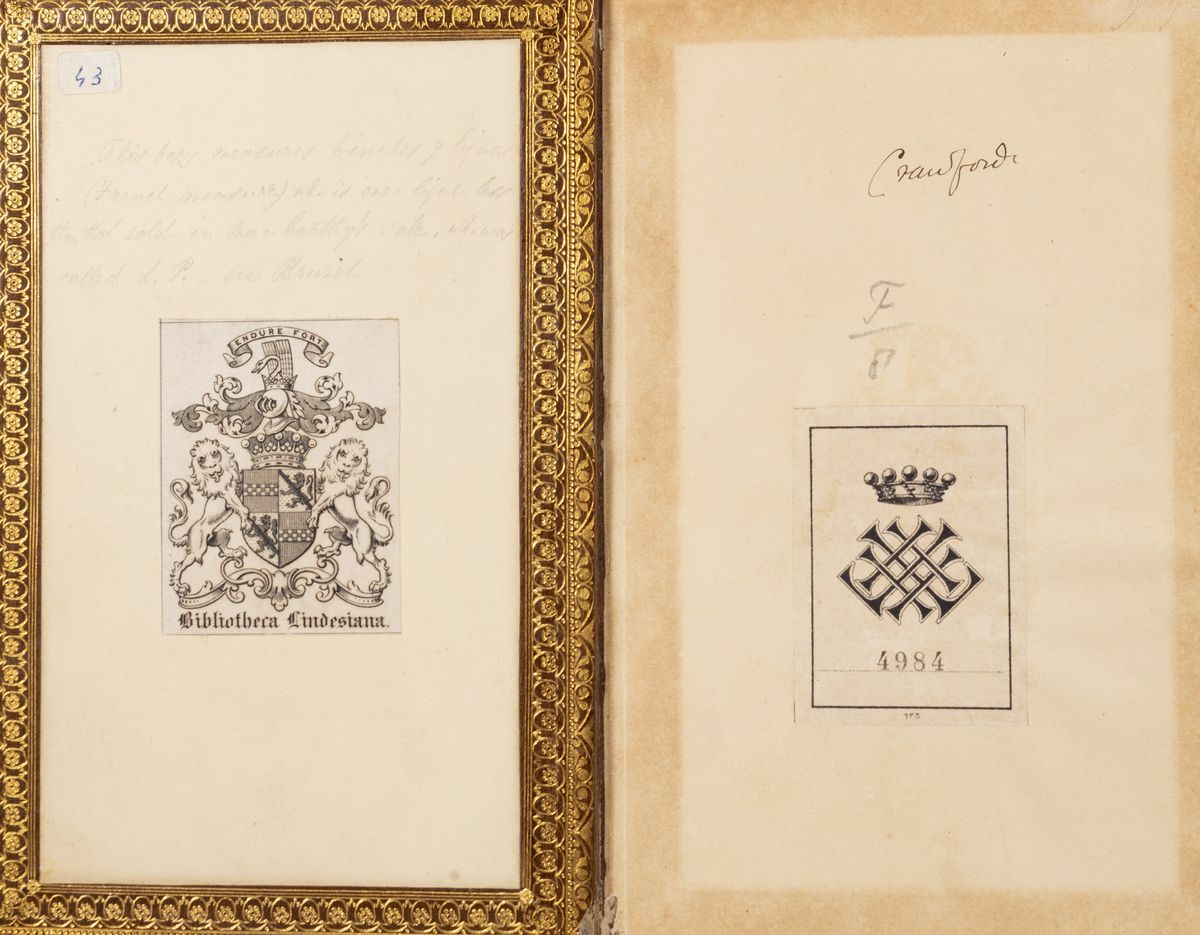 43
This copy measures 6 inches 7 lignes
(French measure) wh. is one ligne less
than that sold in MacCarthy's sale, wh. was
called L. P. - see Brunet
ENDURE FORT
Bibliotheca Lindesiana.
Crawford
F
8
4984